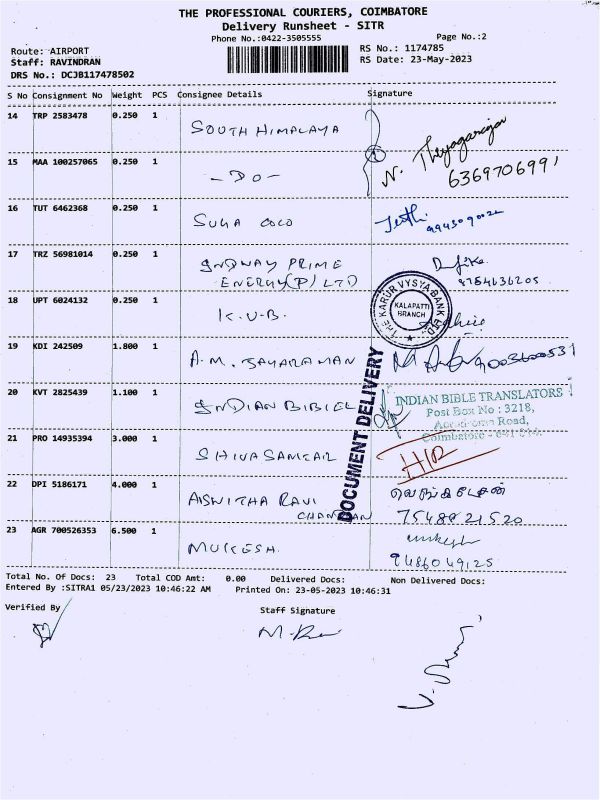 THE PROFESSIONAL COURIERS, COIMBATORE
Delivery Runsheet - SITR
Phone No.:0422-3505555
Page No.:2
Route: AIRPORT
RS No.: 1174785
Staff: RAVINDRAN
RS Date: 23-May-2023
DRS No.: DCJB117478502
S No Consignment No Weight PCS Consignee Details Signature
14 TRP 2583478 0.250 1 SOUTH HIMALAYA
15 MAA 100257065 0.250 1 -DO- N. Thyagarajan
6369706991
16 TUT 6462368 0.250 1 SUGA COCO Jeethi
9945090022
17 TRZ 56981014 0.250 1 INDWAY PRIME
ENERGY(P) LTD 9784636205
18 UPT 6024132 0.250 1 K.V.B.
THE KARUR VYSYA BANK LTD
KALAPATTI
BRANCH
19 KDI 242509 1.800 1 A.M. JAYARAMAN 9003600531
DOCUMENT DELIVERY
20 KVT 2825439 1.100 1 INDIAN BIBIEL
INDIAN BIBLE TRANSLATORS
Post Box No : 3218,
Aerodrome Road,
Coimbatore - 641 014.
21 PRO 14935394 3.000 1 SHIVA SANKAR
22 DPI 5186171 4.000 1 ASWITHA RAVI
CHANDRAN வெங்கடேசன்
7548821520
23 AGR 700526353 6.500 1 MUKESH.
9486049125
Total No. Of Docs: 23 Total COD Amt: 0.00 Delivered Docs: Non Delivered Docs:
Entered By :SITRA1 05/23/2023 10:46:22 AM Printed On: 23-05-2023 10:46:31
Verified By
Staff Signature